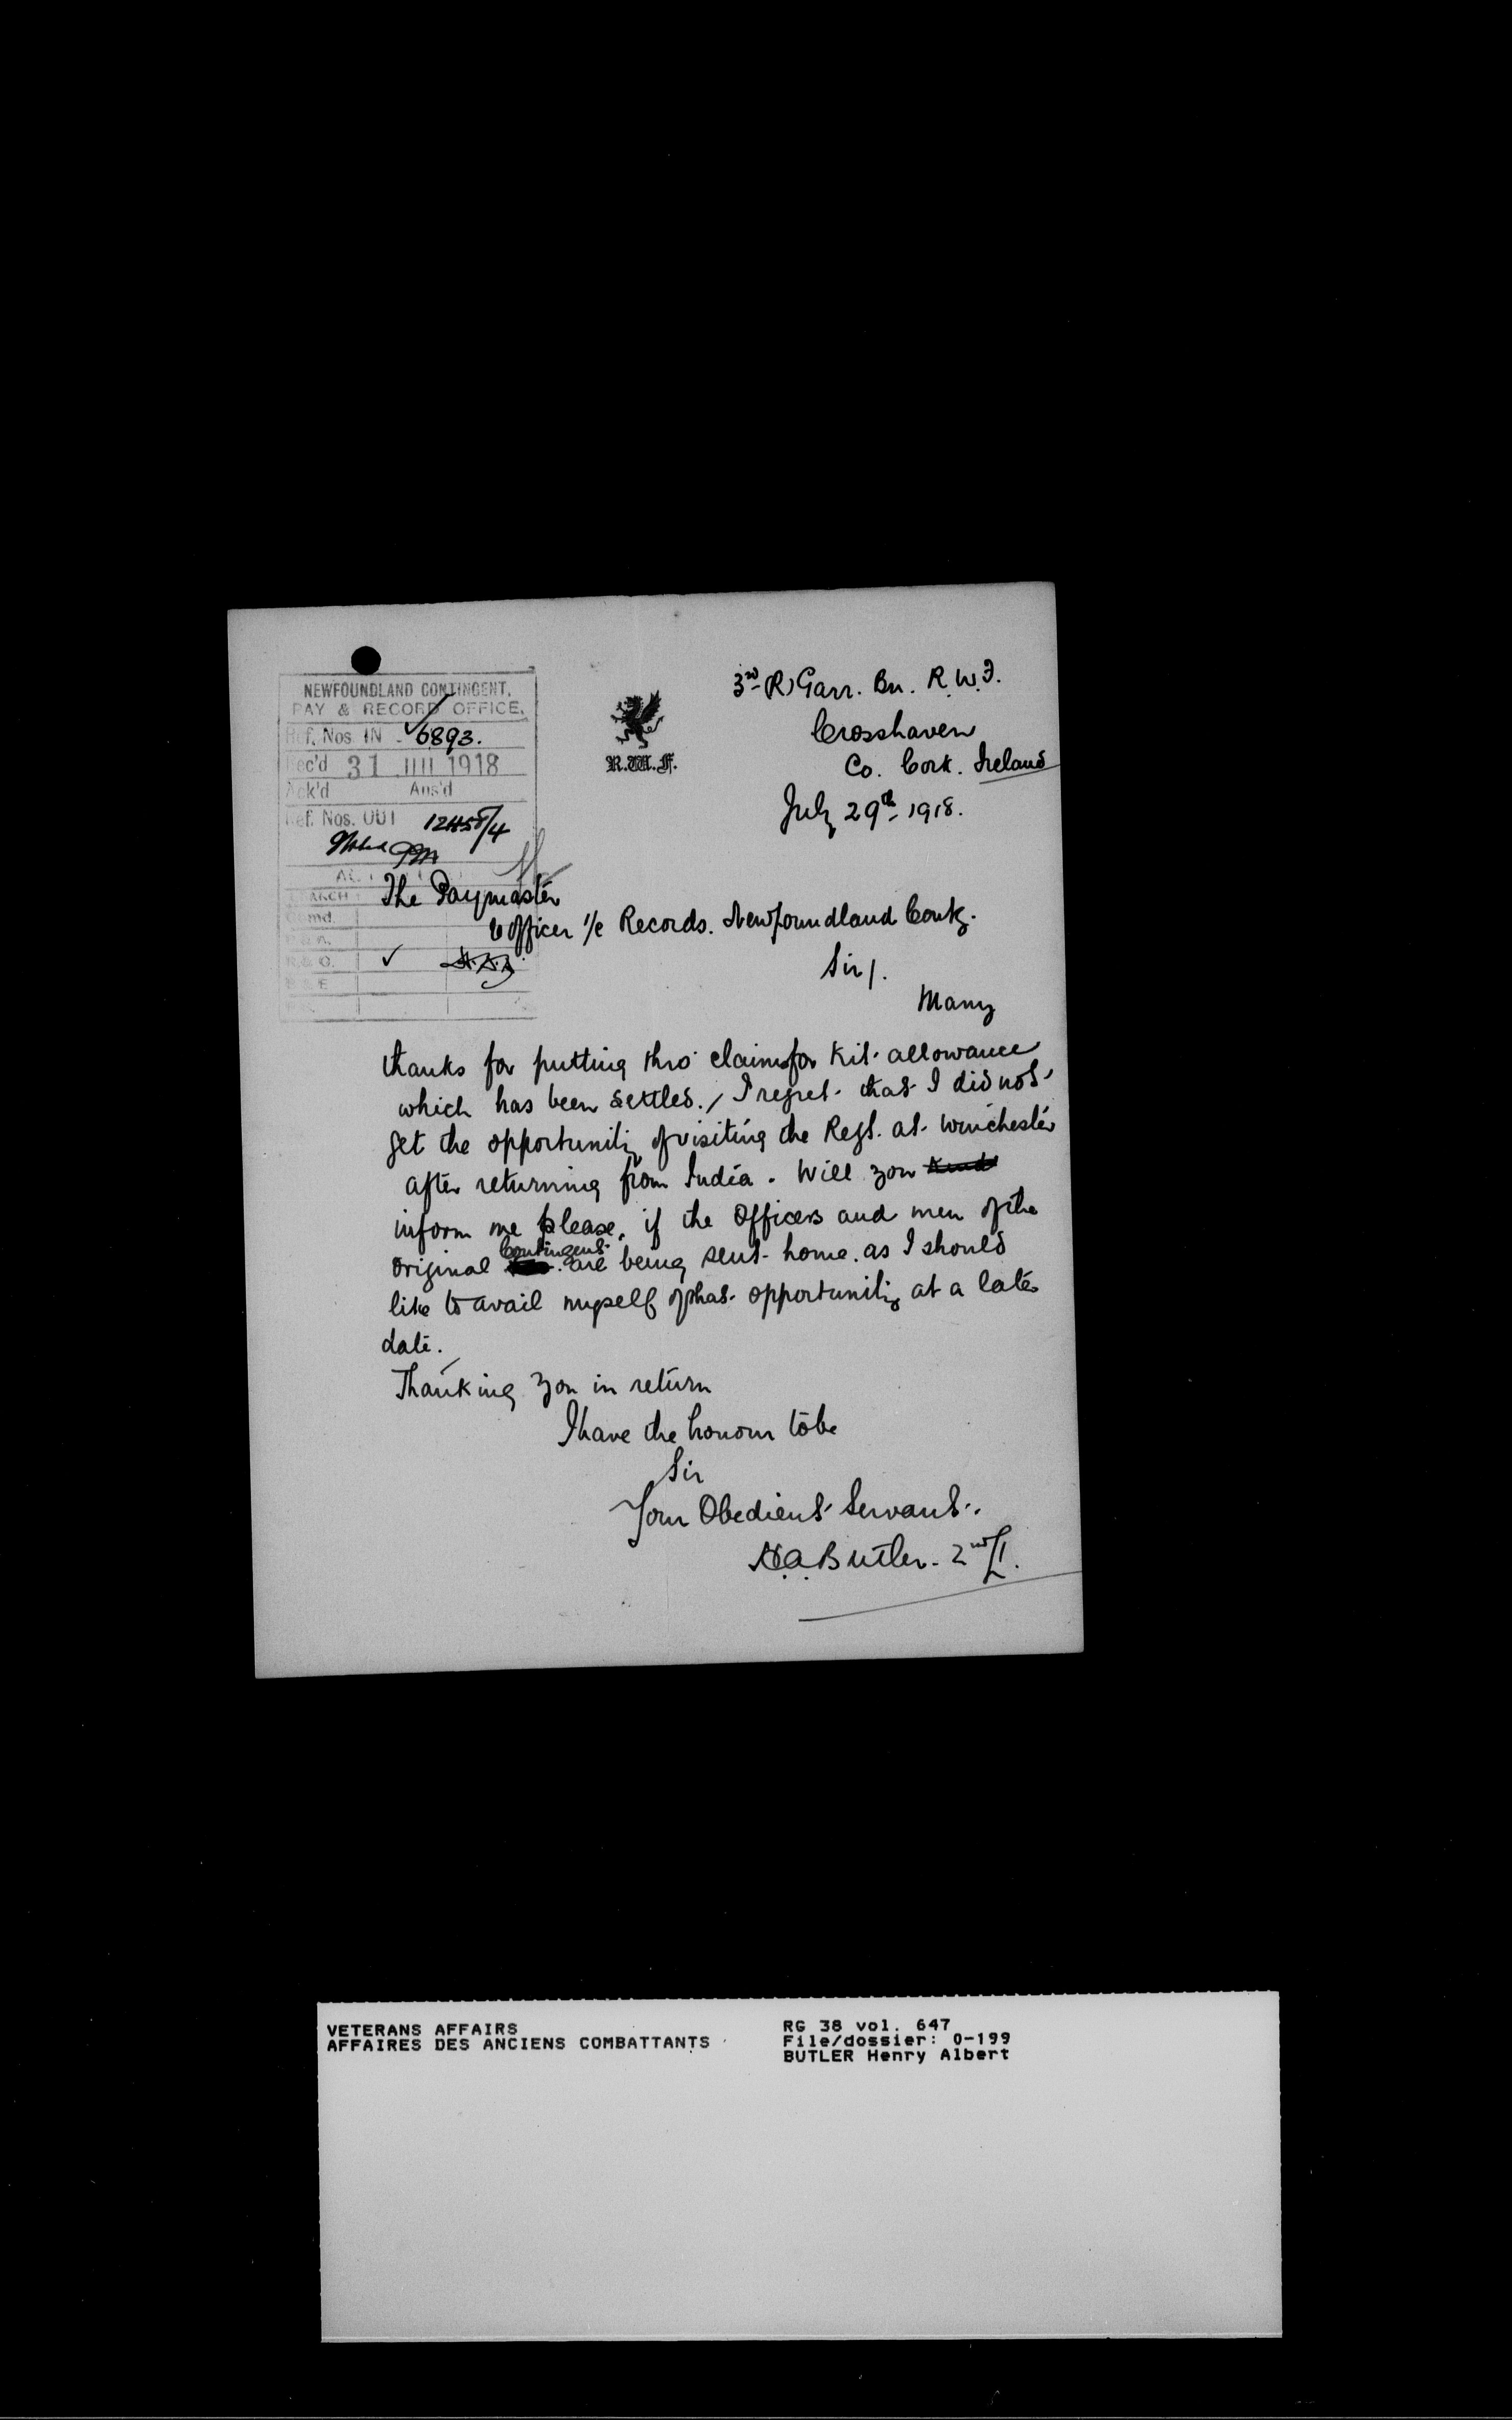 NEWFOUNDLAND CONTINGENT.
PAY & RECORD OFFICE.
Ref. Nos. IN 6893.
Rec'd 31 JUL 1918
Ack'd Ans'd
Ref. Nos. OUT
R.W.F.
3rd (R) Garr. Bn. R.W.F.
Crosshaven
Co. Cork. Ireland
July 29th 1918.
The Paymaster
& Officer i/c Records. Newfoundland Contg.
Sir/.
Many
thanks for putting thro' claim for Kit allowance
which has been settled. I regret that I did not
get the opportunity of visiting the Regt. at Winchester
after returning from India. Will you kind
inform me please, if the Officers and men of the
original Contingent are being sent home. as I should
like to avail myself of that opportunity at a later
date.
Thanking you in return
I have the honour to be
Sir
Your Obedient Servant.
H.A. Butler. 2nd/Lt.
VETERANS AFFAIRS
AFFAIRES DES ANCIENS COMBATTANTS
RG 38 vol. 647
File/dossier: 0-199
BUTLER Henry Albert